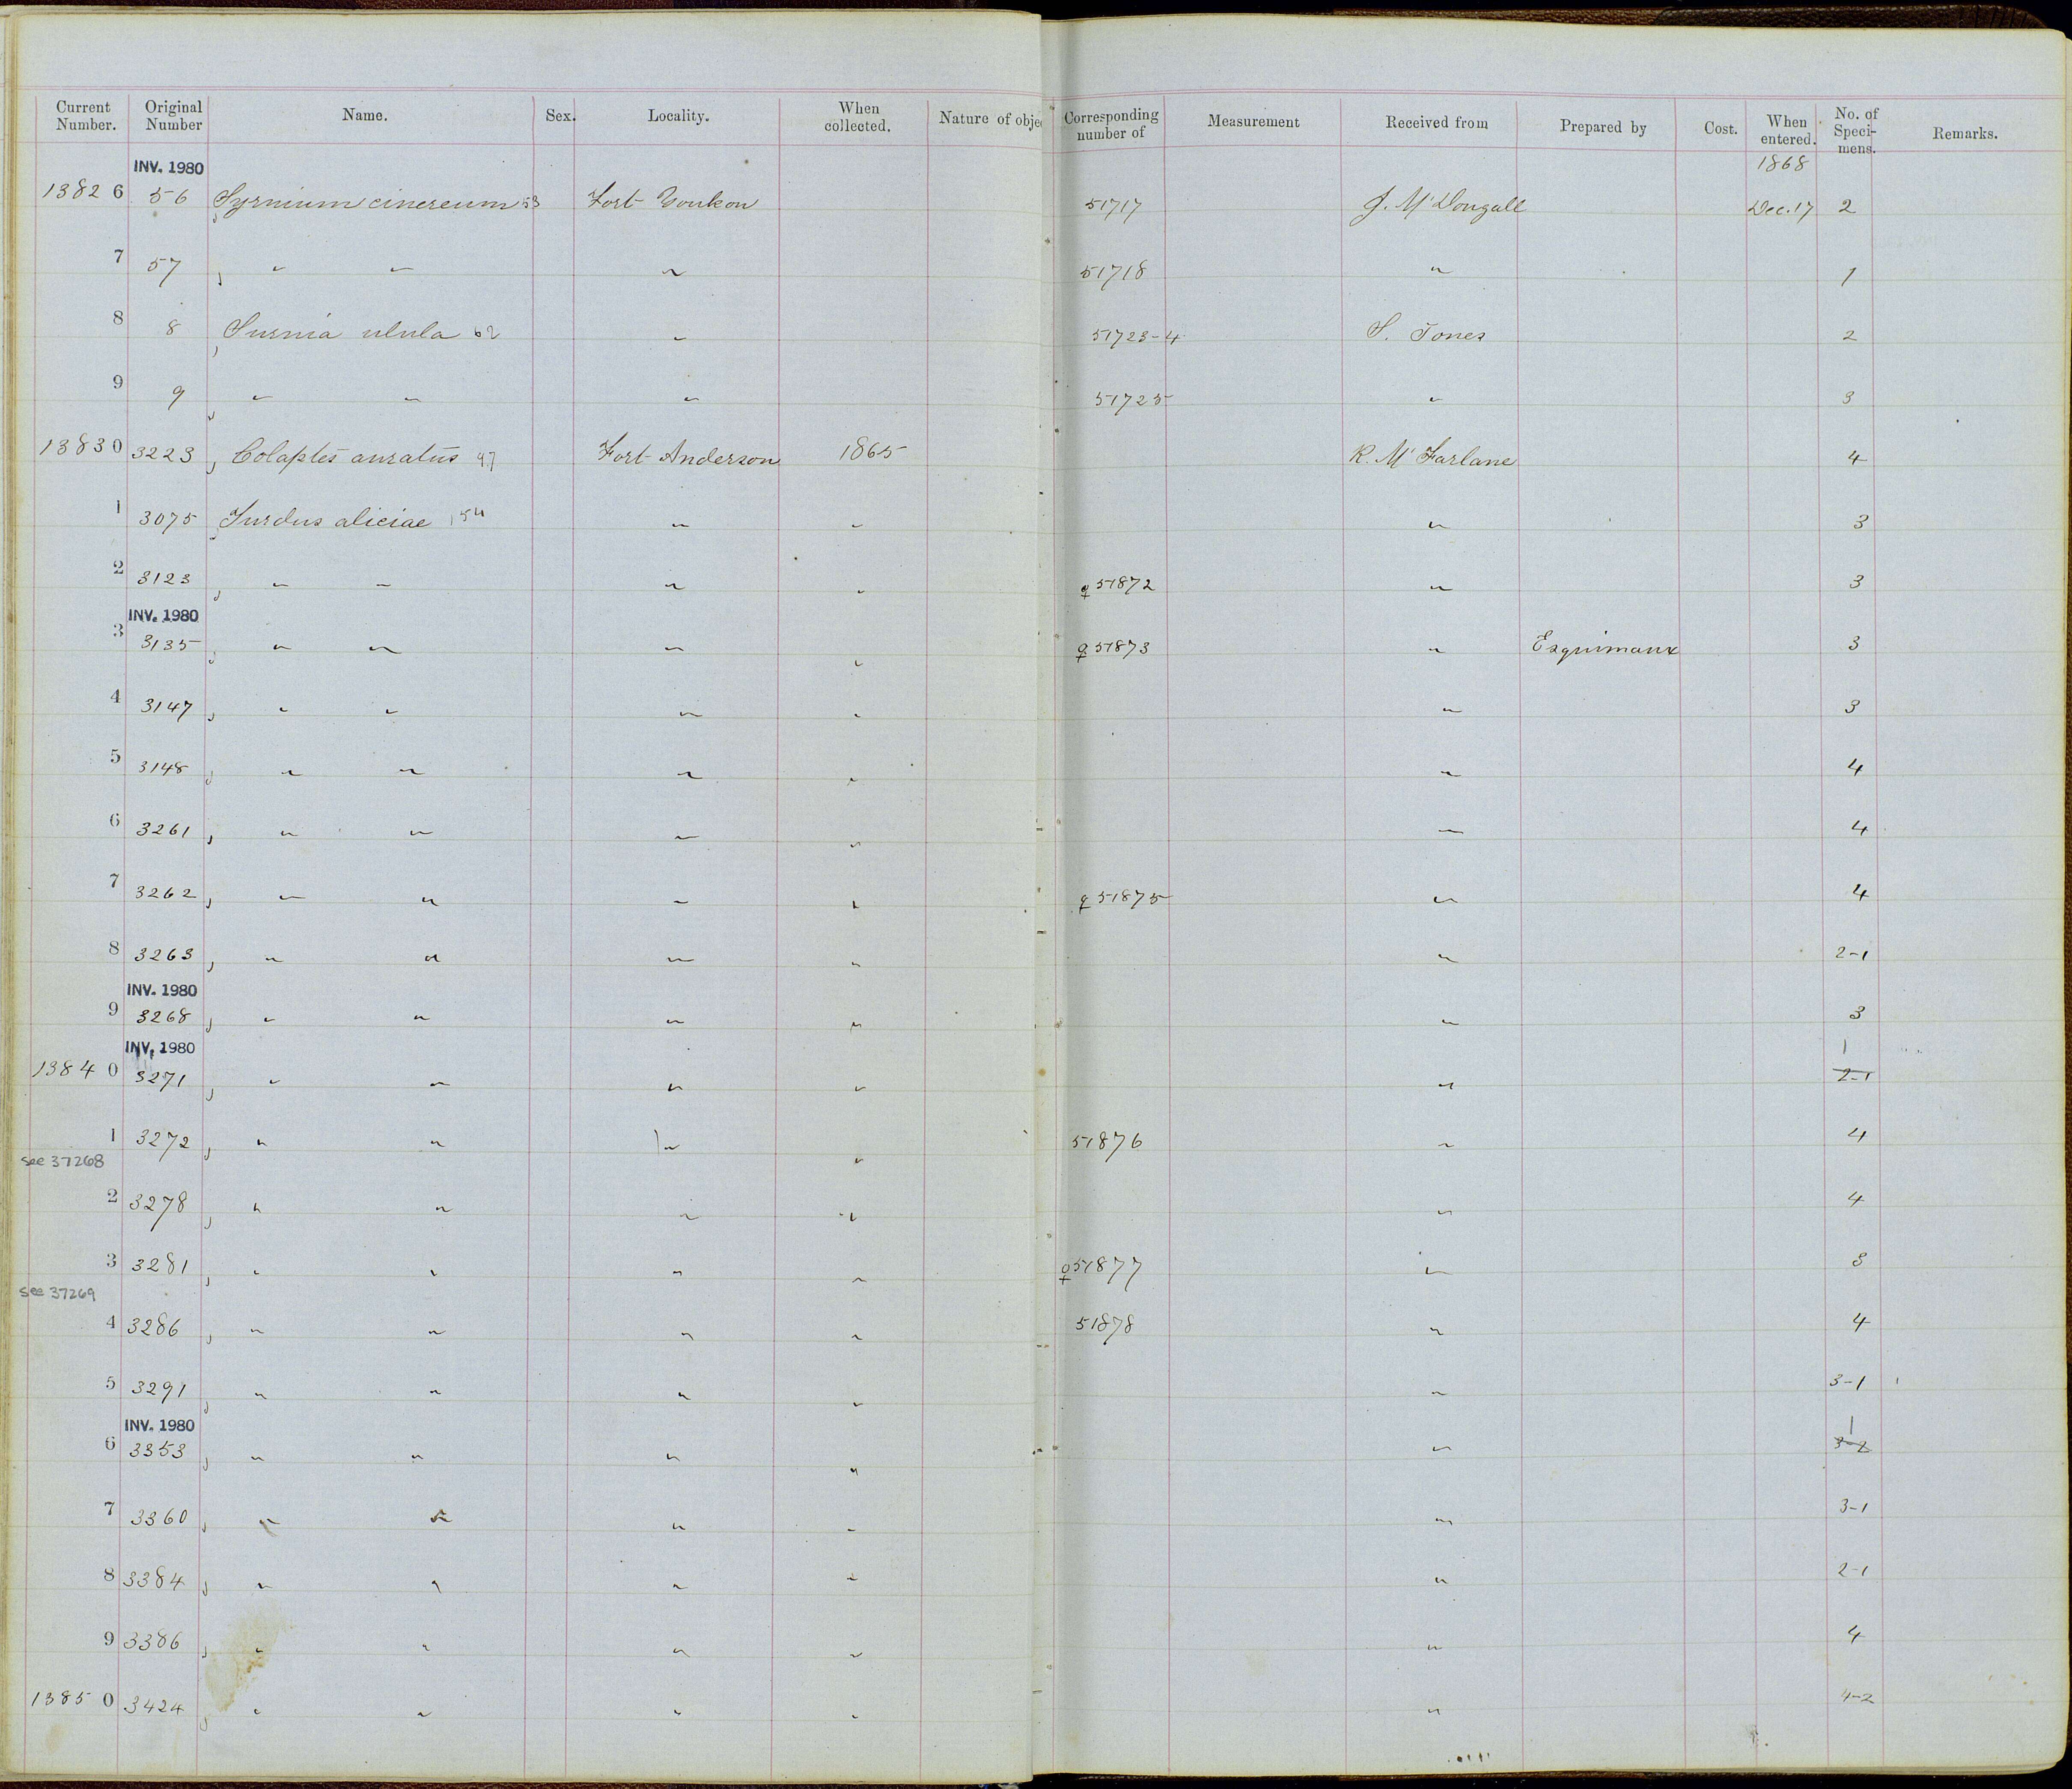 Current Number. Original Number Name. Sex. Locality. When collected. Nature of obje Corresponding number of Measurement Received from Prepared by Cost. When entered. No. of Speci-mens. Remarks.
INV. 1980 1868
13826 56 Syrnium cinereum 53 Fort Youkon 51717 J. McDougall Dec. 17 2
7 57 " " " 51718 " 1
8 8 Surnia ulula 62 " 51723-4 S. Jones 2
9 9 " " " 51725 " 3
13830 3223 Colaptes auratus 97 Fort Anderson 1865 R. McFarlane 4
1 3075 Turdus aliciae 154 " " " 3
2 3123 " " " " ♀ 51872 " 3
INV. 1980
3 3135 " " " " ♀ 51873 " Esquimaux 3
4 3147 " " " " " 3
5 3148 " " " " " 4
6 3261 " " " " " 4
7 3262 " " " " ♀ 51875 " 4
8 3263 " " " " " 2-1
INV. 1980
9 3268 " " " " " 3
INV. 1980 1
13840 3271 " " " " " 2-1
1 3272 " " " " 51876 " 4
see 37268
2 3278 " " " " " 4
3 3281 " " " " ♀ 51877 " 3
see 37269
4 3286 " " " " 51878 " 4
5 3291 " " " " " 3-1
INV. 1980 1
6 3353 " " " " " 3-2
7 3360 " " " " " 3-1
8 3384 " " " " " 2-1
9 3386 " " " " " 4
13850 3424 " " " " " 4-2